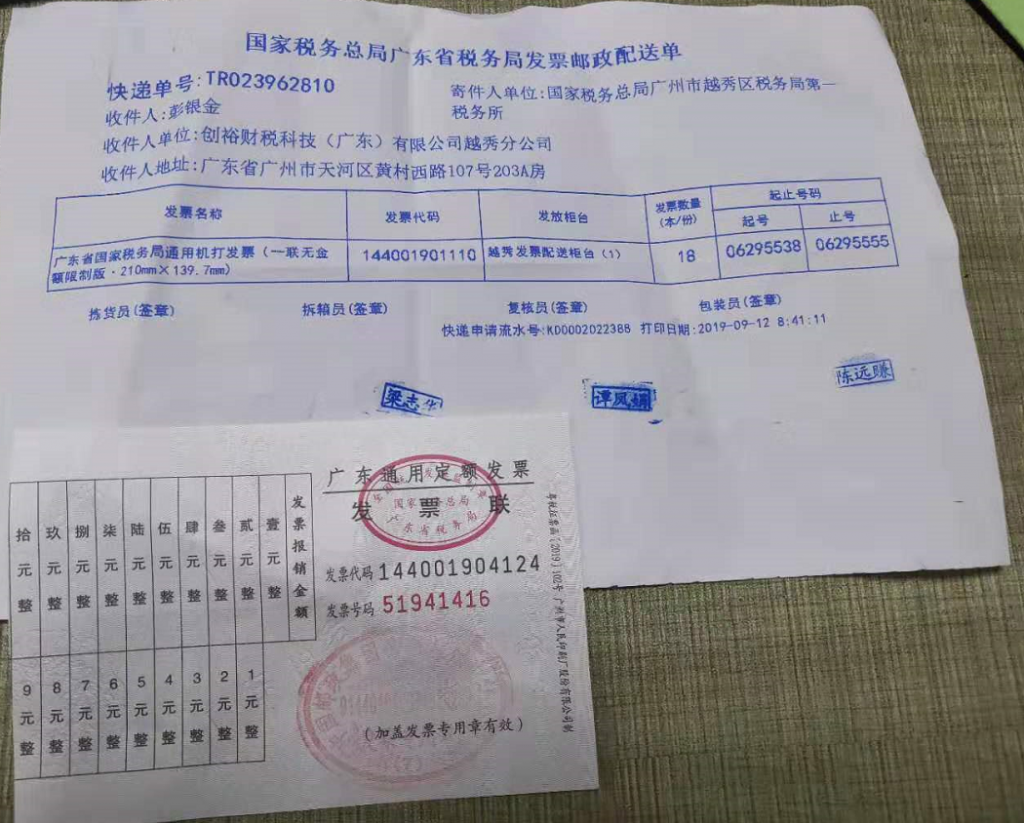 国家税务总局广东省税务局发票邮政配送单
快递单号:TR023962810
寄件人单位:国家税务总局广州市越秀区税务局第一
税务所
收件人:彭银金
收件人单位:创裕财税科技（广东）有限公司越秀分公司
收件人地址:广东省广州市天河区黄村西路107号203A房
发票名称 发票代码 发放柜台 发票数量(本/份) 起止号码
起号 止号
广东省国家税务局通用机打发票（一联无金 144001901110 越秀发票配送柜台（1） 18 06295538 06295555
额限制版·210mm×139.7mm）
拣货员(签章) 拆箱员(签章) 复核员(签章) 包装员(签章)
快递申请流水号:KD0002022388 打印日期:2019-09-12 8:41:11
梁志华
谭凤娟
陈远赚
广东通用定额发票
发票联
国家税务总局
广东省税务局
发票代码 144001904124
发票号码 51941416
（加盖发票专用章有效）
发票报销金额
壹元整
贰元整
叁元整
肆元整
伍元整
陆元整
柒元整
捌元整
玖元整
拾元整
1元整
2元整
3元整
4元整
5元整
6元整
7元整
8元整
9元整